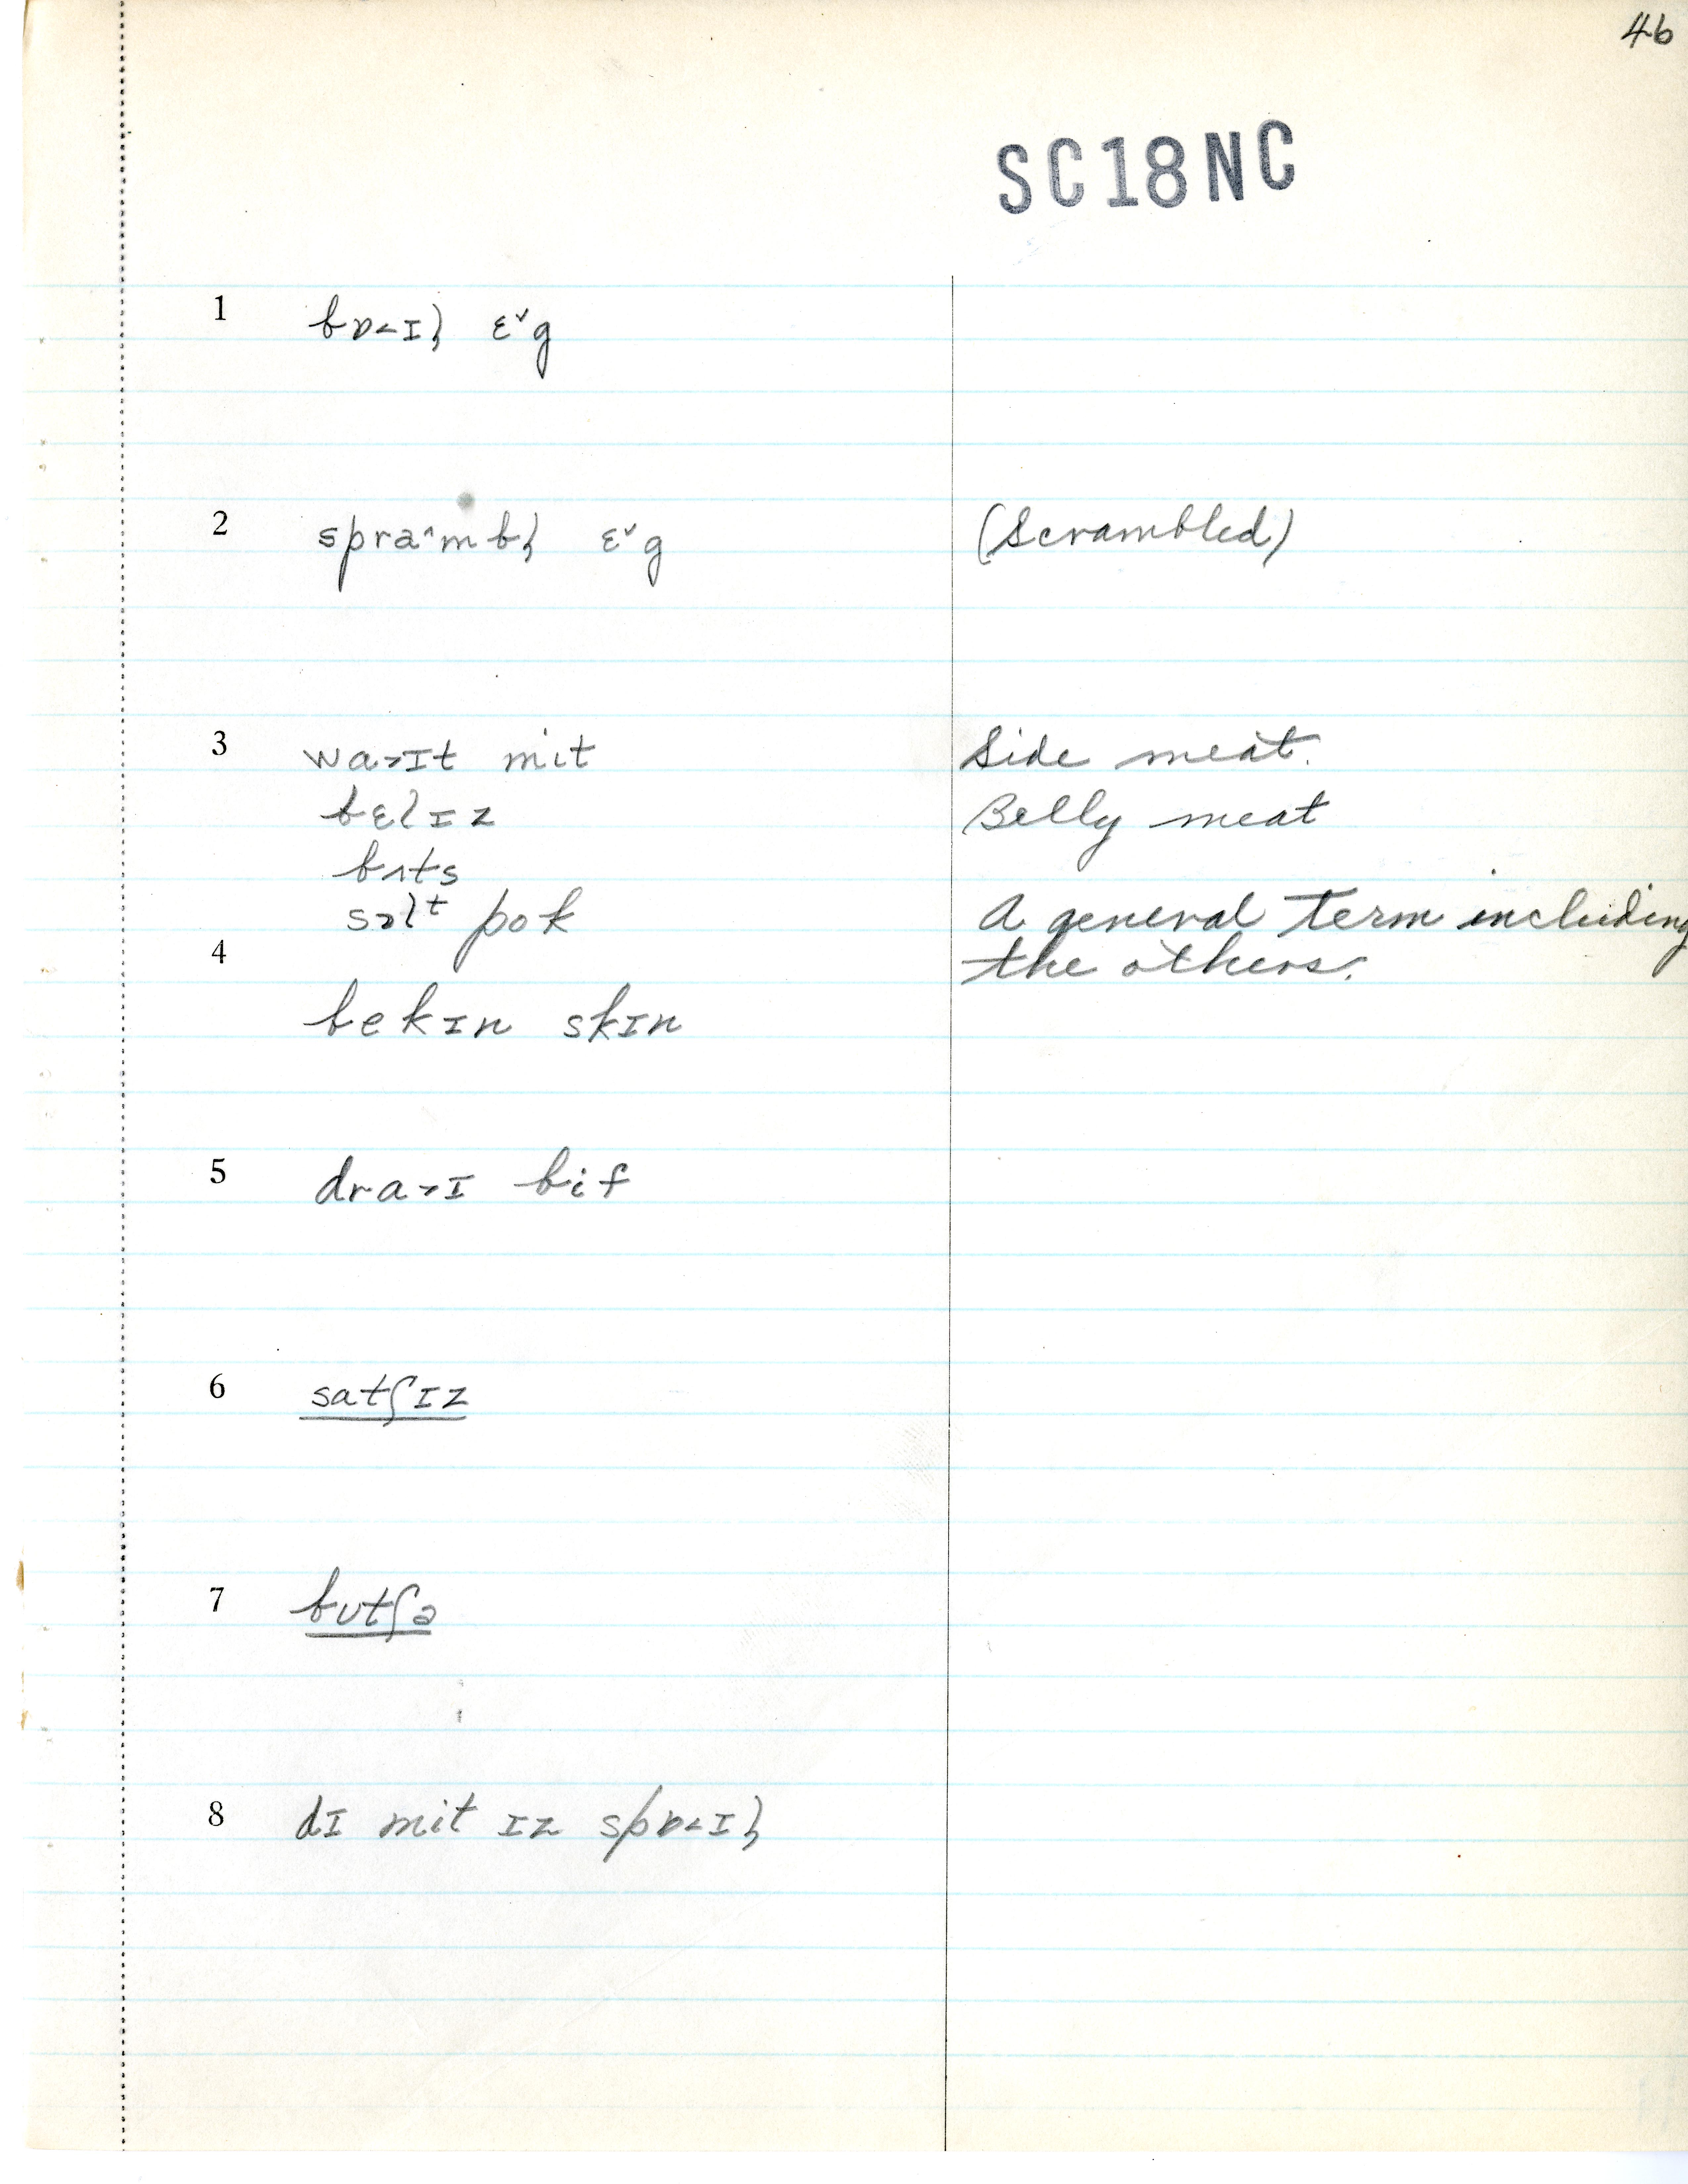 46
SC18NC
1 bɒ˂ɪl̩ ɛˇg
2 spraˆmbl̩ ɛˇg (Scrambled)
3 wa˃ɪt mit Side meat.
bɛlɪz Belly meat
bʌts
sɔlᵗ pok A general term including
4 the others.
bekɪn skɪn
5 dra˃ɪ bif
6 satʃɪz
7 bʊtʃə
8 dɪ mit ɪz spɒ˂ɪl̩